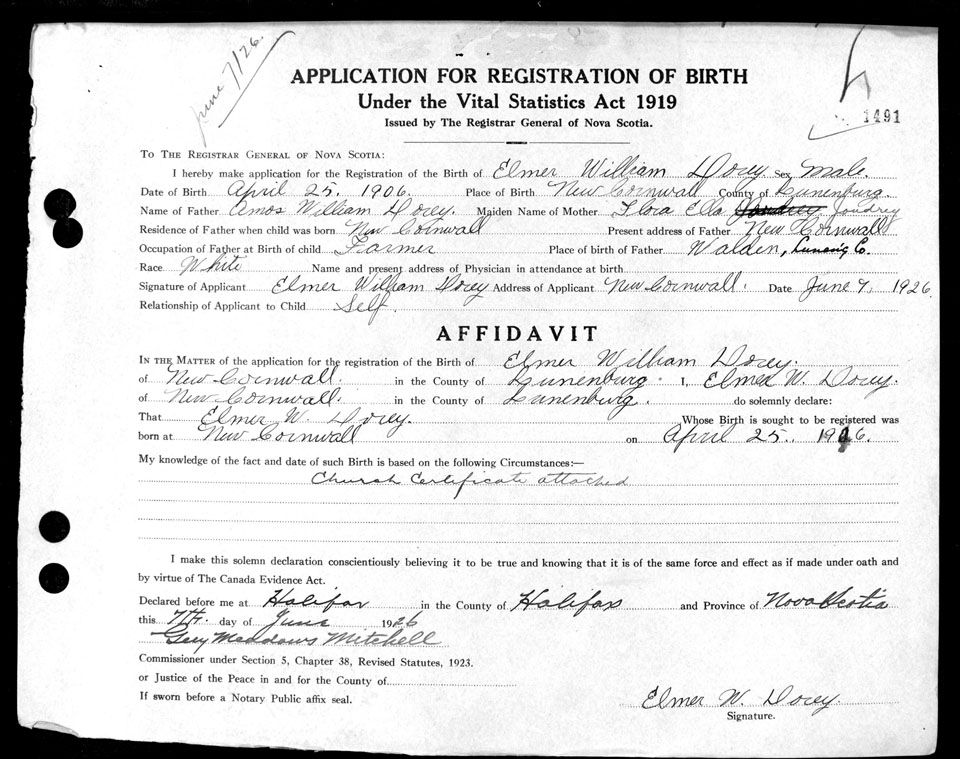 June 7/26.
1491
APPLICATION FOR REGISTRATION OF BIRTH
Under the Vital Statistics Act 1919
Issued by The Registrar General of Nova Scotia.
TO THE REGISTRAR GENERAL OF NOVA SCOTIA:
I hereby make application for the Registration of the Birth of Elmer William Dorey Sex Male.
Date of Birth April 25. 1906. Place of Birth New Cornwall County of Lunenburg.
Name of Father Amos William Dorey. Maiden Name of Mother Flora Ella Joudrey
Residence of Father when child was born New Cornwall Present address of Father New Cornwall
Occupation of Father at Birth of child Farmer Place of birth of Father Walden, Co.
Race White Name and present address of Physician in attendance at birth
Signature of Applicant Elmer William Dorey Address of Applicant New Cornwall. Date June 7, 1926.
Relationship of Applicant to Child Self.
AFFIDAVIT
IN THE MATTER of the application for the registration of the Birth of Elmer William Dorey.
of New Cornwall. in the County of Lunenburg. I, Elmer W. Dorey.
of New Cornwall. in the County of Lunenburg. do solemnly declare:
That Elmer W. Dorey. Whose Birth is sought to be registered was
born at New Cornwall on April 25. 1906.
My knowledge of the fact and date of such Birth is based on the following Circumstances:—
Church Certificate attached
I make this solemn declaration conscientiously believing it to be true and knowing that it is of the same force and effect as if made under oath and
by virtue of The Canada Evidence Act.
Declared before me at Halifax in the County of Halifax and Province of Nova Scotia
this 7th. day of June 1926
Meadows Mitchell
Commissioner under Section 5, Chapter 38, Revised Statutes, 1923.
or Justice of the Peace in and for the County of
If sworn before a Notary Public affix seal.
Elmer W. Dorey.
Signature.